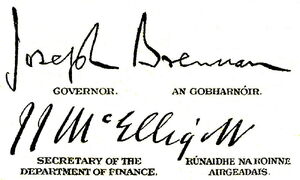 Joseph Brennan
GOVERNOR. AN GOBHARNÓIR.
JJ McElligott
SECRETARY OF THE RÚNAIDHE NA ROINNE
DEPARTMENT OF FINANCE. AIRGEADAIS.